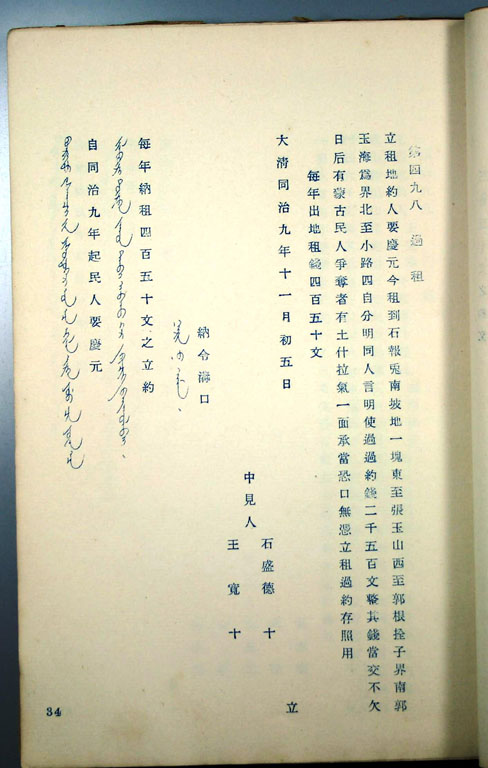 第四九八　過租
立租地約人要慶元今租到石報兎南坡地一塊東至張玉山西至郭根拴子界南郭
玉海爲界北至小路四自分明同人言明使過過約錢二千五百文整其錢當交不欠
日后有蒙古民人爭奪者有土什拉氣一面承當恐口無憑立租過約存照用
每年出地租錢四百五十文
大清同治九年十一月初五日　立
中見人
石盛德　十
王寬　十
納令溝口
每年納租四百五十文之立約
自同治九年起民人要慶元
34